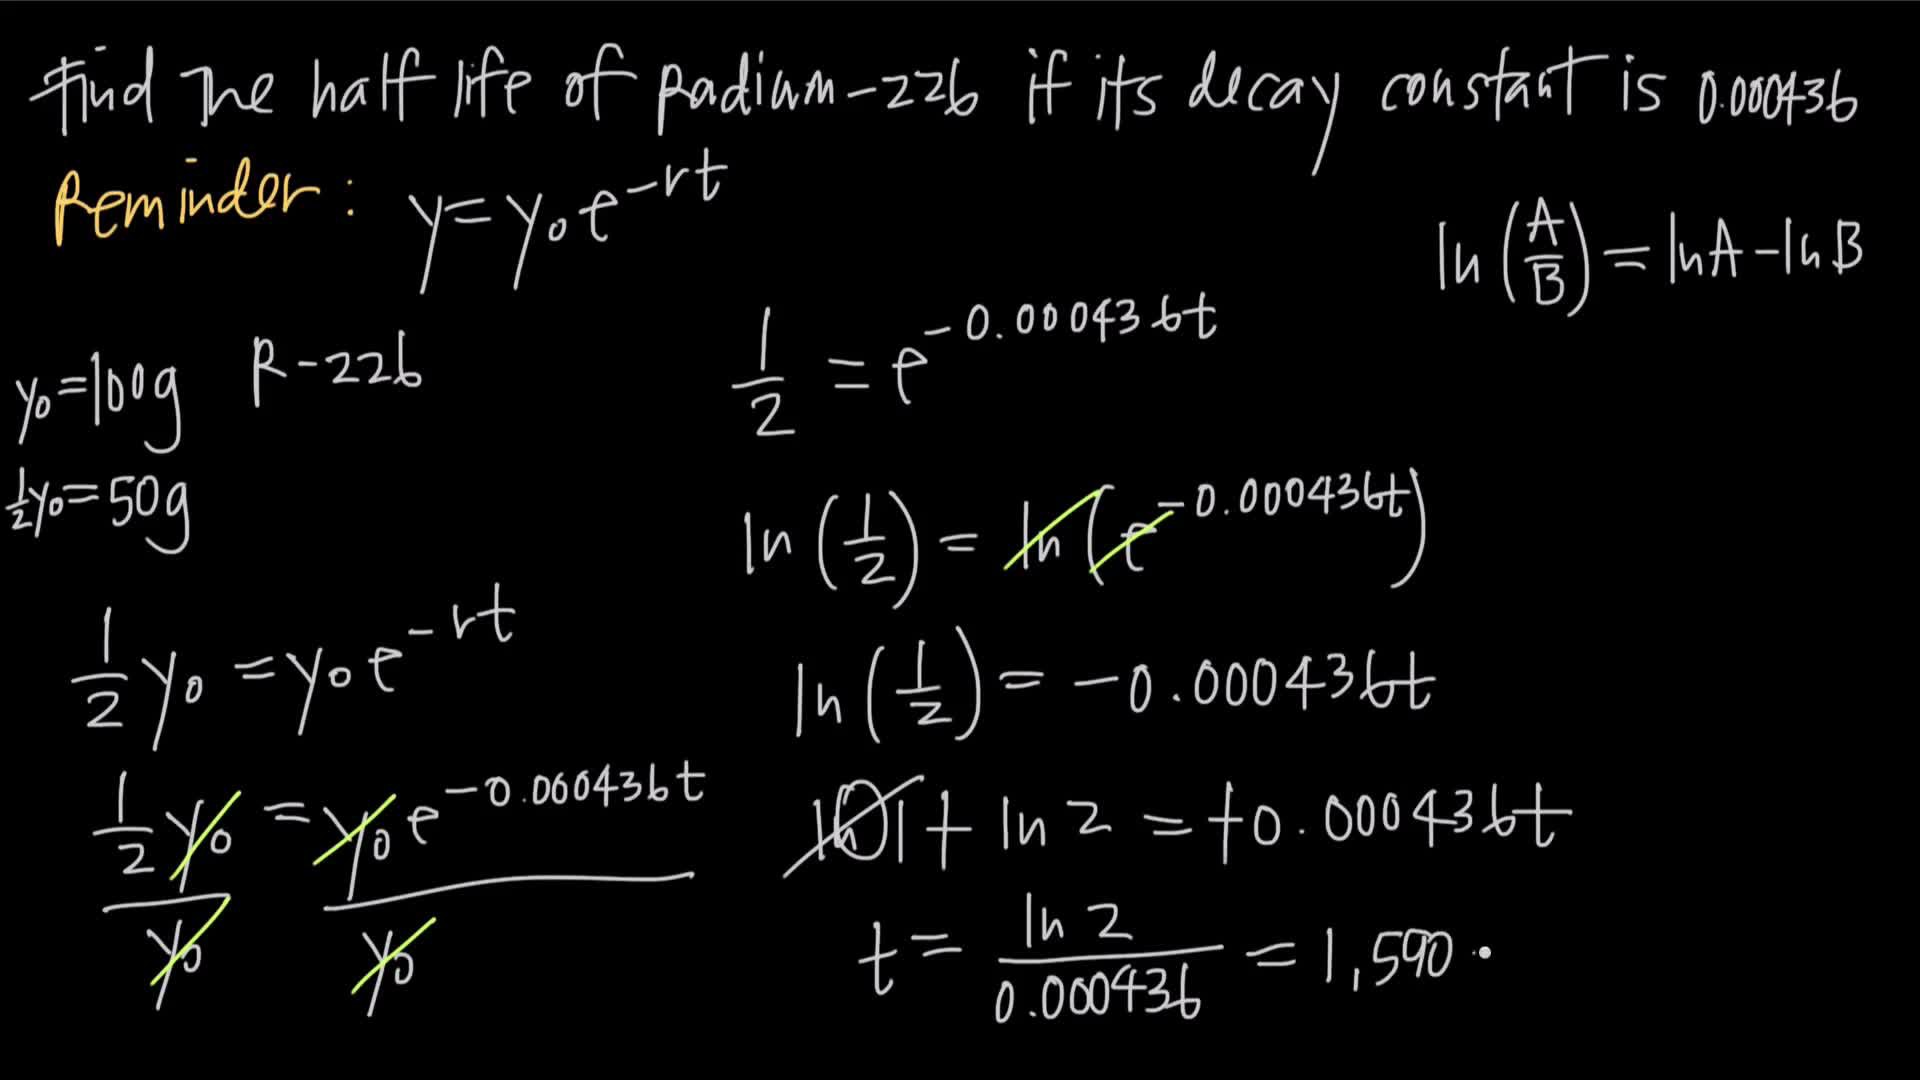 Find The half life of Radium-226 if its decay constant is 0.000436
Reminder: y = y₀e^(-rt)
ln(A/B) = lnA - lnB
y₀ = 100g R-226
½y₀ = 50g
½y₀ = y₀e^(-rt)
½y₀/y₀ = y₀e^(-0.000436t)/y₀
1/2 = e^(-0.000436t)
ln(1/2) = ln(e^(-0.000436t))
ln(1/2) = -0.000436t
ln 1 + ln 2 = +0.000436t
t = ln 2/0.000436 = 1,590.